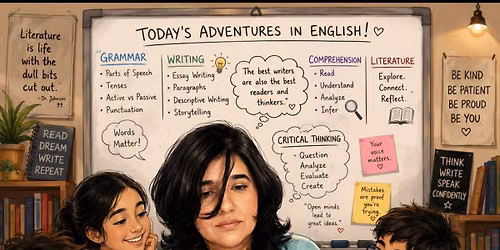 TODAY'S ADVENTURES IN ENGLISH! ♡
Literature
is life
with the
dull bits
cut out.
- Dr. Johnson
"
GRAMMAR
• Parts of Speech
• Tenses
• Active vs Passive
• Punctuation
Words
Matter!
WRITING
• Essay Writing
• Paragraphs
• Descriptive Writing
• Storytelling
The best writers
are also the best
readers and
thinkers.
♡
COMPREHENSION
• Read
• Understand
• Analyze
• Infer
LITERATURE
Explore.
Connect.
Reflect.
CRITICAL THINKING
- Question
Analyze
Evaluate
Create
"Open minds
lead to
great ideas."
Your
voice
matters.
♡
Mistakes
are proof
you're
trying.
BE KIND
BE PATIENT
BE PROUD
BE YOU
♡
READ
DREAM
WRITE
REPEAT
THINK
WRITE
SPEAK
CONFIDENTLY
☆